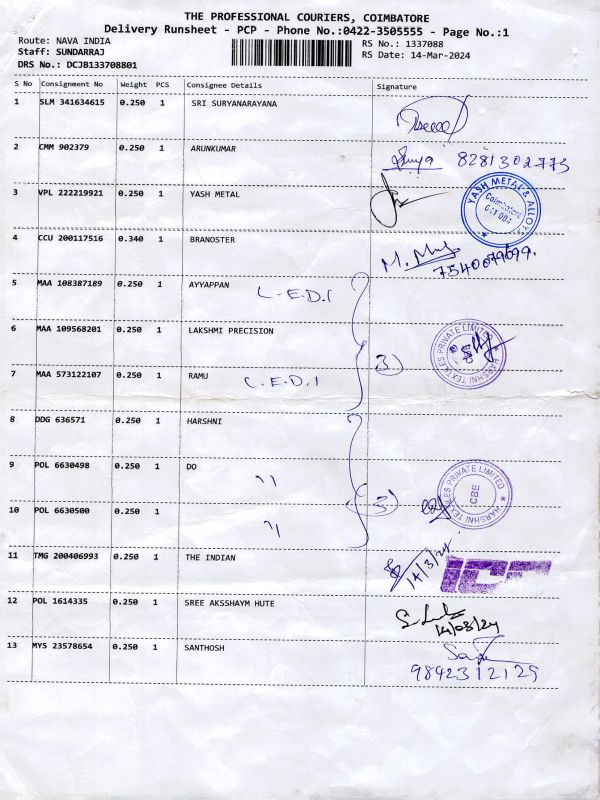 THE PROFESSIONAL COURIERS, COIMBATORE
Delivery Runsheet - PCP - Phone No.:0422-3505555 - Page No.:1
Route: NAVA INDIA
RS No.: 1337088
Staff: SUNDARRAJ
RS Date: 14-Mar-2024
DRS No.: DCJB133708801
S No Consignment No Weight PCS Consignee Details Signature
1 SLM 341634615 0.250 1 SRI SURYANARAYANA
2 CMM 902379 0.250 1 ARUNKUMAR 8281302773
3 VPL 222219921 0.250 1 YASH METAL
YASH METAL & ALLOY
Coimbatore
4 CCU 200117516 0.340 1 BRANOSTER
5 MAA 108387189 0.250 1 AYYAPPAN L.E.D.I
6 MAA 109568201 0.250 1 LAKSHMI PRECISION
HARSHNI TEXTILES PRIVATE LIMITED
7 MAA 573122107 0.250 1 RAMU L.E.D.I 3)
8 DDG 636571 0.250 1 HARSHNI
9 POL 6630498 0.250 1 DO "
HARSHNI TEXTILES PRIVATE LIMITED
CBE
10 POL 6630500 0.250 1 " 3)
11 TMG 200406993 0.250 1 THE INDIAN 14/3/24
12 POL 1614335 0.250 1 SREE AKSSHAYM HUTE
14/03/24
13 MYS 23578654 0.250 1 SANTHOSH
9842312125